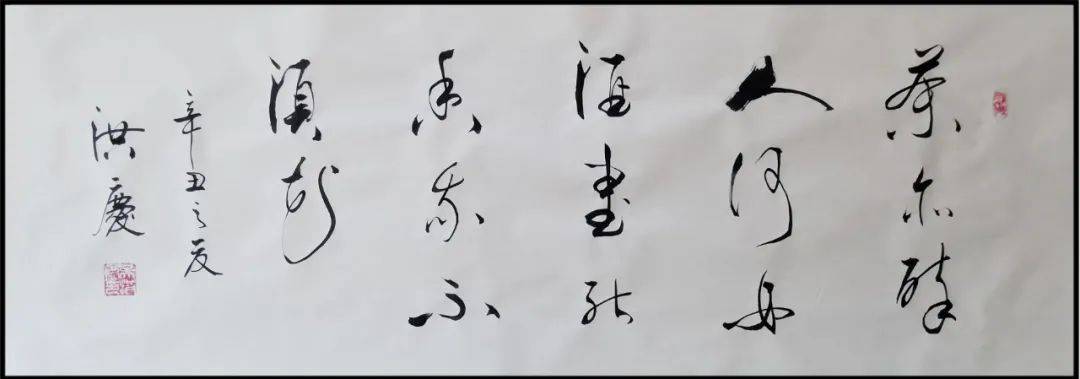 茶亦醉
人何必
酒書能
香我不
須花
辛丑之夏
洪慶